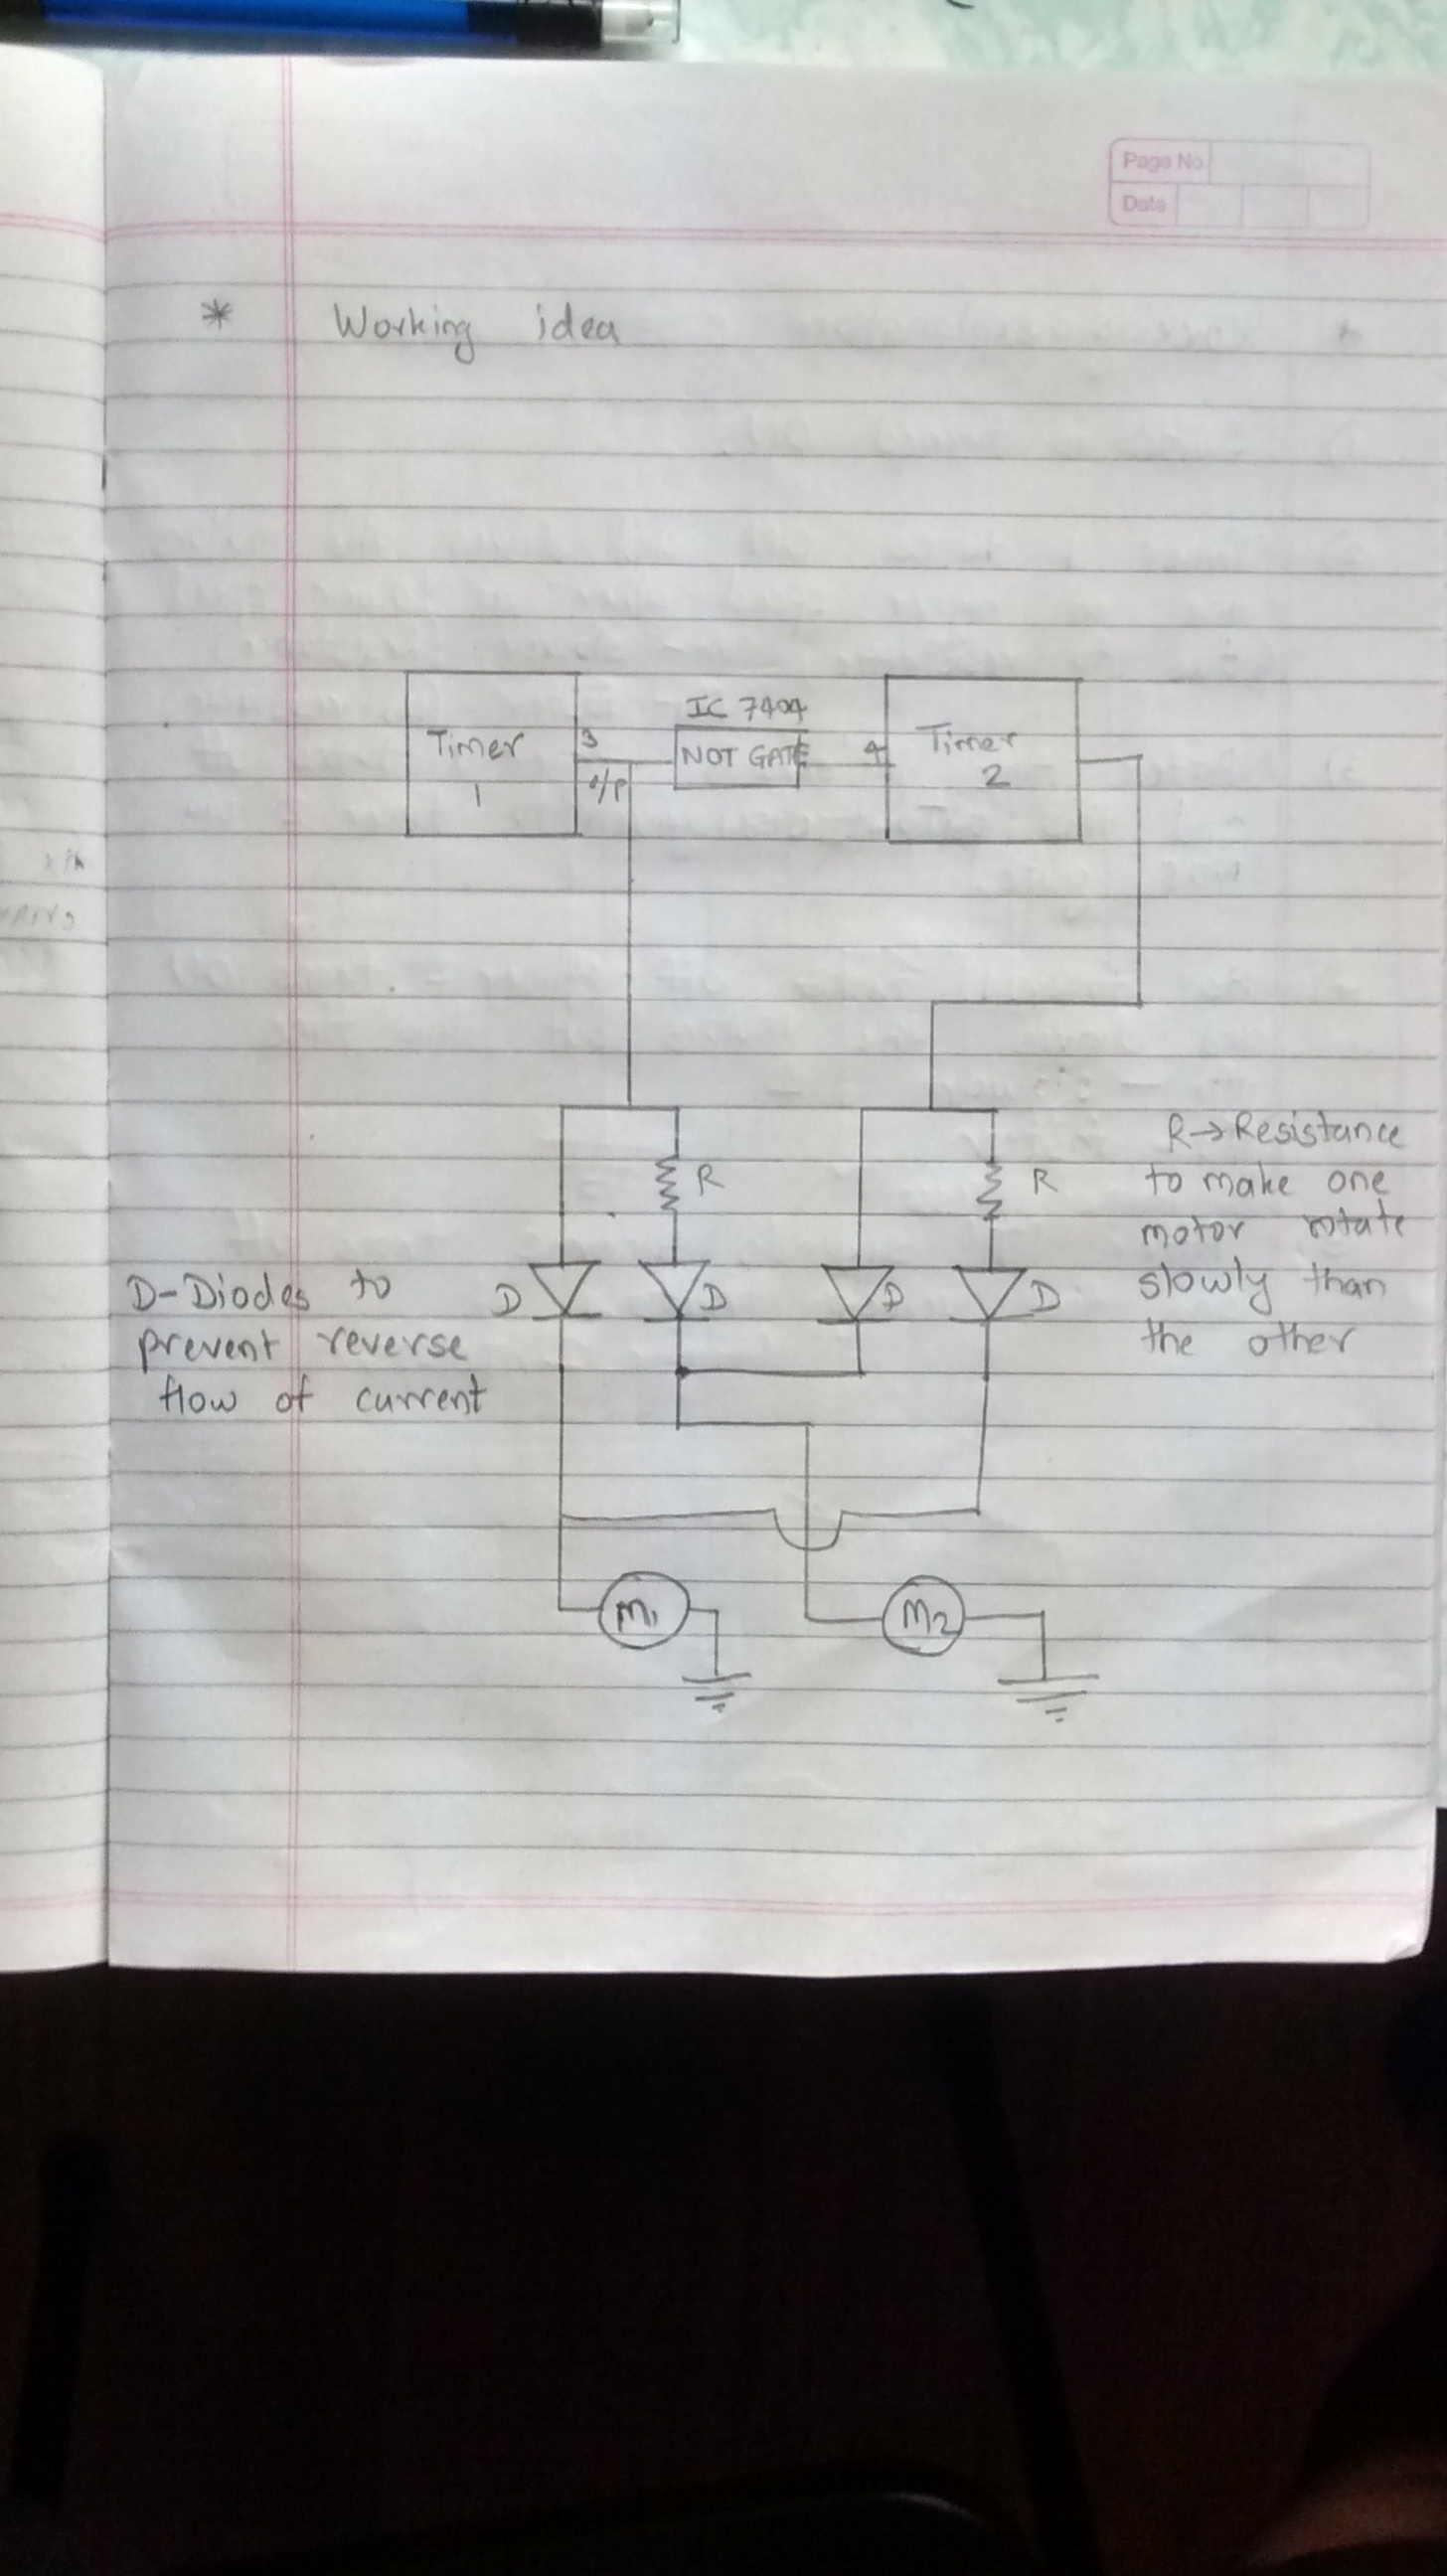 Page No
Date
* Working idea
IC 7404
Timer
1
3
O/P
NOT GATE
4
Timer
2
R
R
R→Resistance
to make one
motor rotate
slowly than
the other
D-Diodes to
prevent reverse
flow of current
D
D
D
D
M1
M2